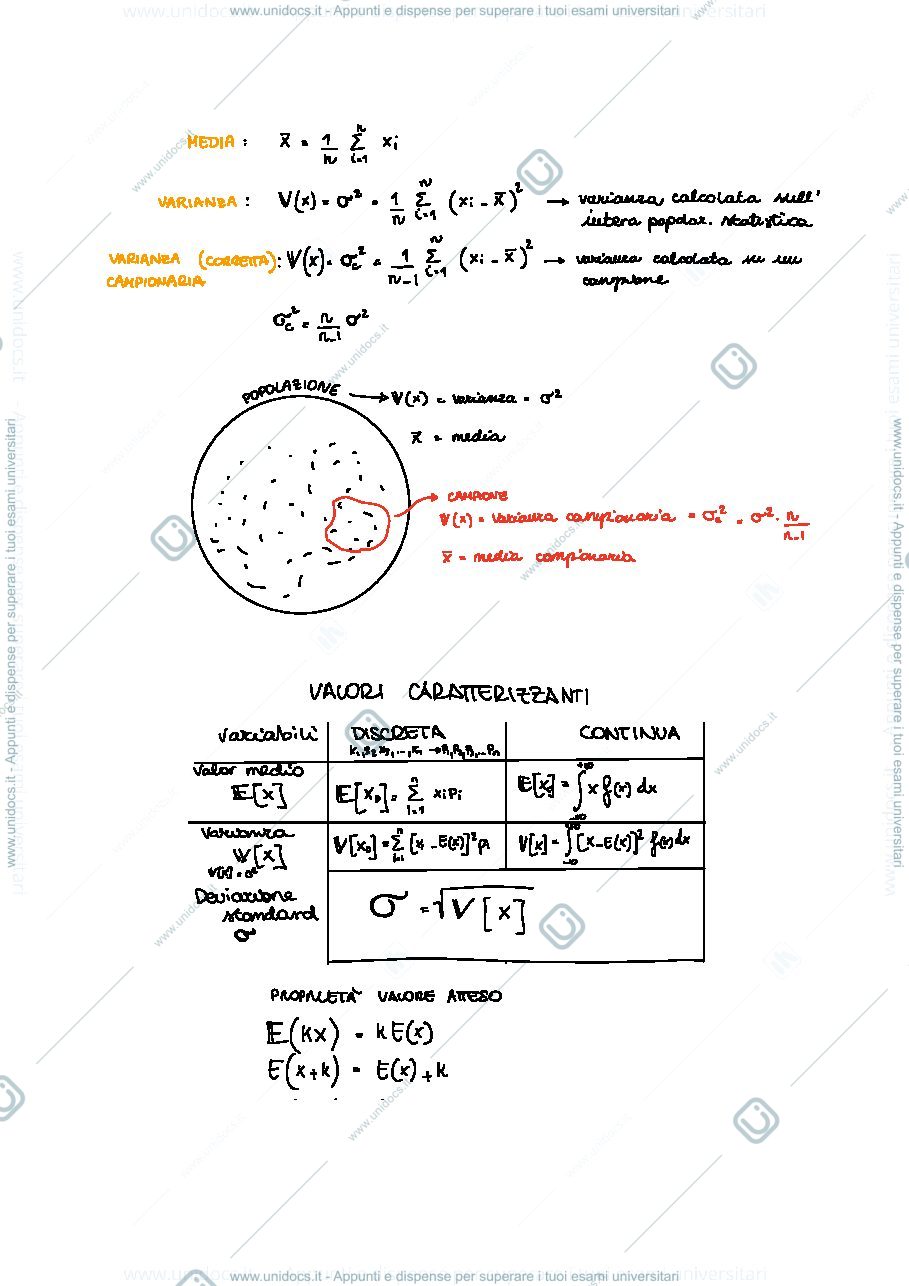 www.unidocs.it - Appunti e dispense per superare i tuoi esami universitari
MEDIA : x̄ = 1/n Σ_{i=1}^{n} xi
VARIANZA : V(x) = σ² = 1/n Σ_{i=1}^{n} (xi - x̄)² → varianza calcolata sull'
intera popolaz. statistica
VARIANZA (CORRETTA) : V(x) = σc² = 1/n-1 Σ_{i=1}^{n} (xi - x̄)² → varianza calcolata su un
CAMPIONARIA campione
σc² = n/n-1 σ²
POPOLAZIONE → V(x) = varianza = σ²
x̄ = media
CAMPIONE
V(x) = varianza campionaria = σc² = σ² · n/n-1
x̄ = media campionaria
VALORI CARATTERIZZANTI
Variabili DISCRETA CONTINUA
Valor medio
E[x] E[XD] = Σ_{i=1}^{n} xi pi E[xc] = ∫_{-∞}^{+∞} x f(x) dx
Varianza
V[x] V[XD] = Σ_{i=1}^{n} [xi - E(x)]² pi V[x] = ∫_{-∞}^{+∞} [x - E(x)]² f(x) dx
V[x] = σ²
Deviazione
standard σ = √V[x]
σ
PROPRIETA' VALORE ATTESO
E(kx) = k E(x)
E(x+k) = E(x) + k
www.unidocs.it - Appunti e dispense per superare i tuoi esami universitari